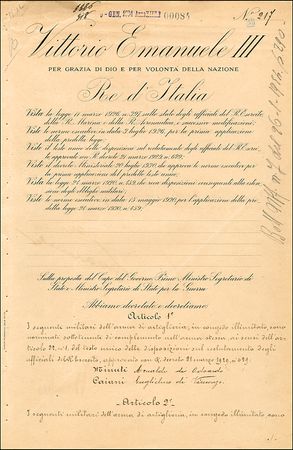 5 - GEN. 1934 00084
N.º 217
Vittorio Emanuele III
PER GRAZIA DI DIO E PER VOLONTÀ DELLA NAZIONE
Re d'Italia
Vista la legge 11 marzo 1926 n. 397 sullo stato degli ufficiali del R. Esercito,
della R. Marina e della R. Aeronautica, e successive modificazioni;
Viste le norme esecutive in data 3 luglio 1926, per la prima applicazione
della predetta legge;
Visto il testo unico delle disposizioni sul reclutamento degli ufficiali del R. Eser.
approvato con R. decreto 21 marzo 1929 n. 629;
Visto il decreto Ministeriale 20 giugno 1930 che approva le norme esecutive per
la prima applicazione del predetto testo unico;
Vista la legge 24 marzo 1930, n. 454,
degli obblighi militari;
Viste le norme esecutive in data 15 maggio 1930 per l'applicazione della pre-
detta legge 24 marzo 1930, n. 454;
Sulla proposta del Capo del Governo Primo Ministro Segretario di
Stato e Ministro Segretario di Stato per la Guerra
Abbiamo decretato e decretiamo:
Articolo 1º
I seguenti militari dell'arma di artiglieria, in congedo illimitato, sono
nominati sottotenenti di complemento nell'arma stessa, ai sensi dell'ar-
ticolo n. 1 del testo unico delle disposizioni sul reclutamento degli
ufficiali del R. Esercito, approvato con R. decreto 21 marzo 1929, n. 629.
Minuti Arnaldo di Edoardo
Caiani Guglielmo di
Articolo 2º
I seguenti militari dell'arma di artiglieria, in congedo illimitato sono